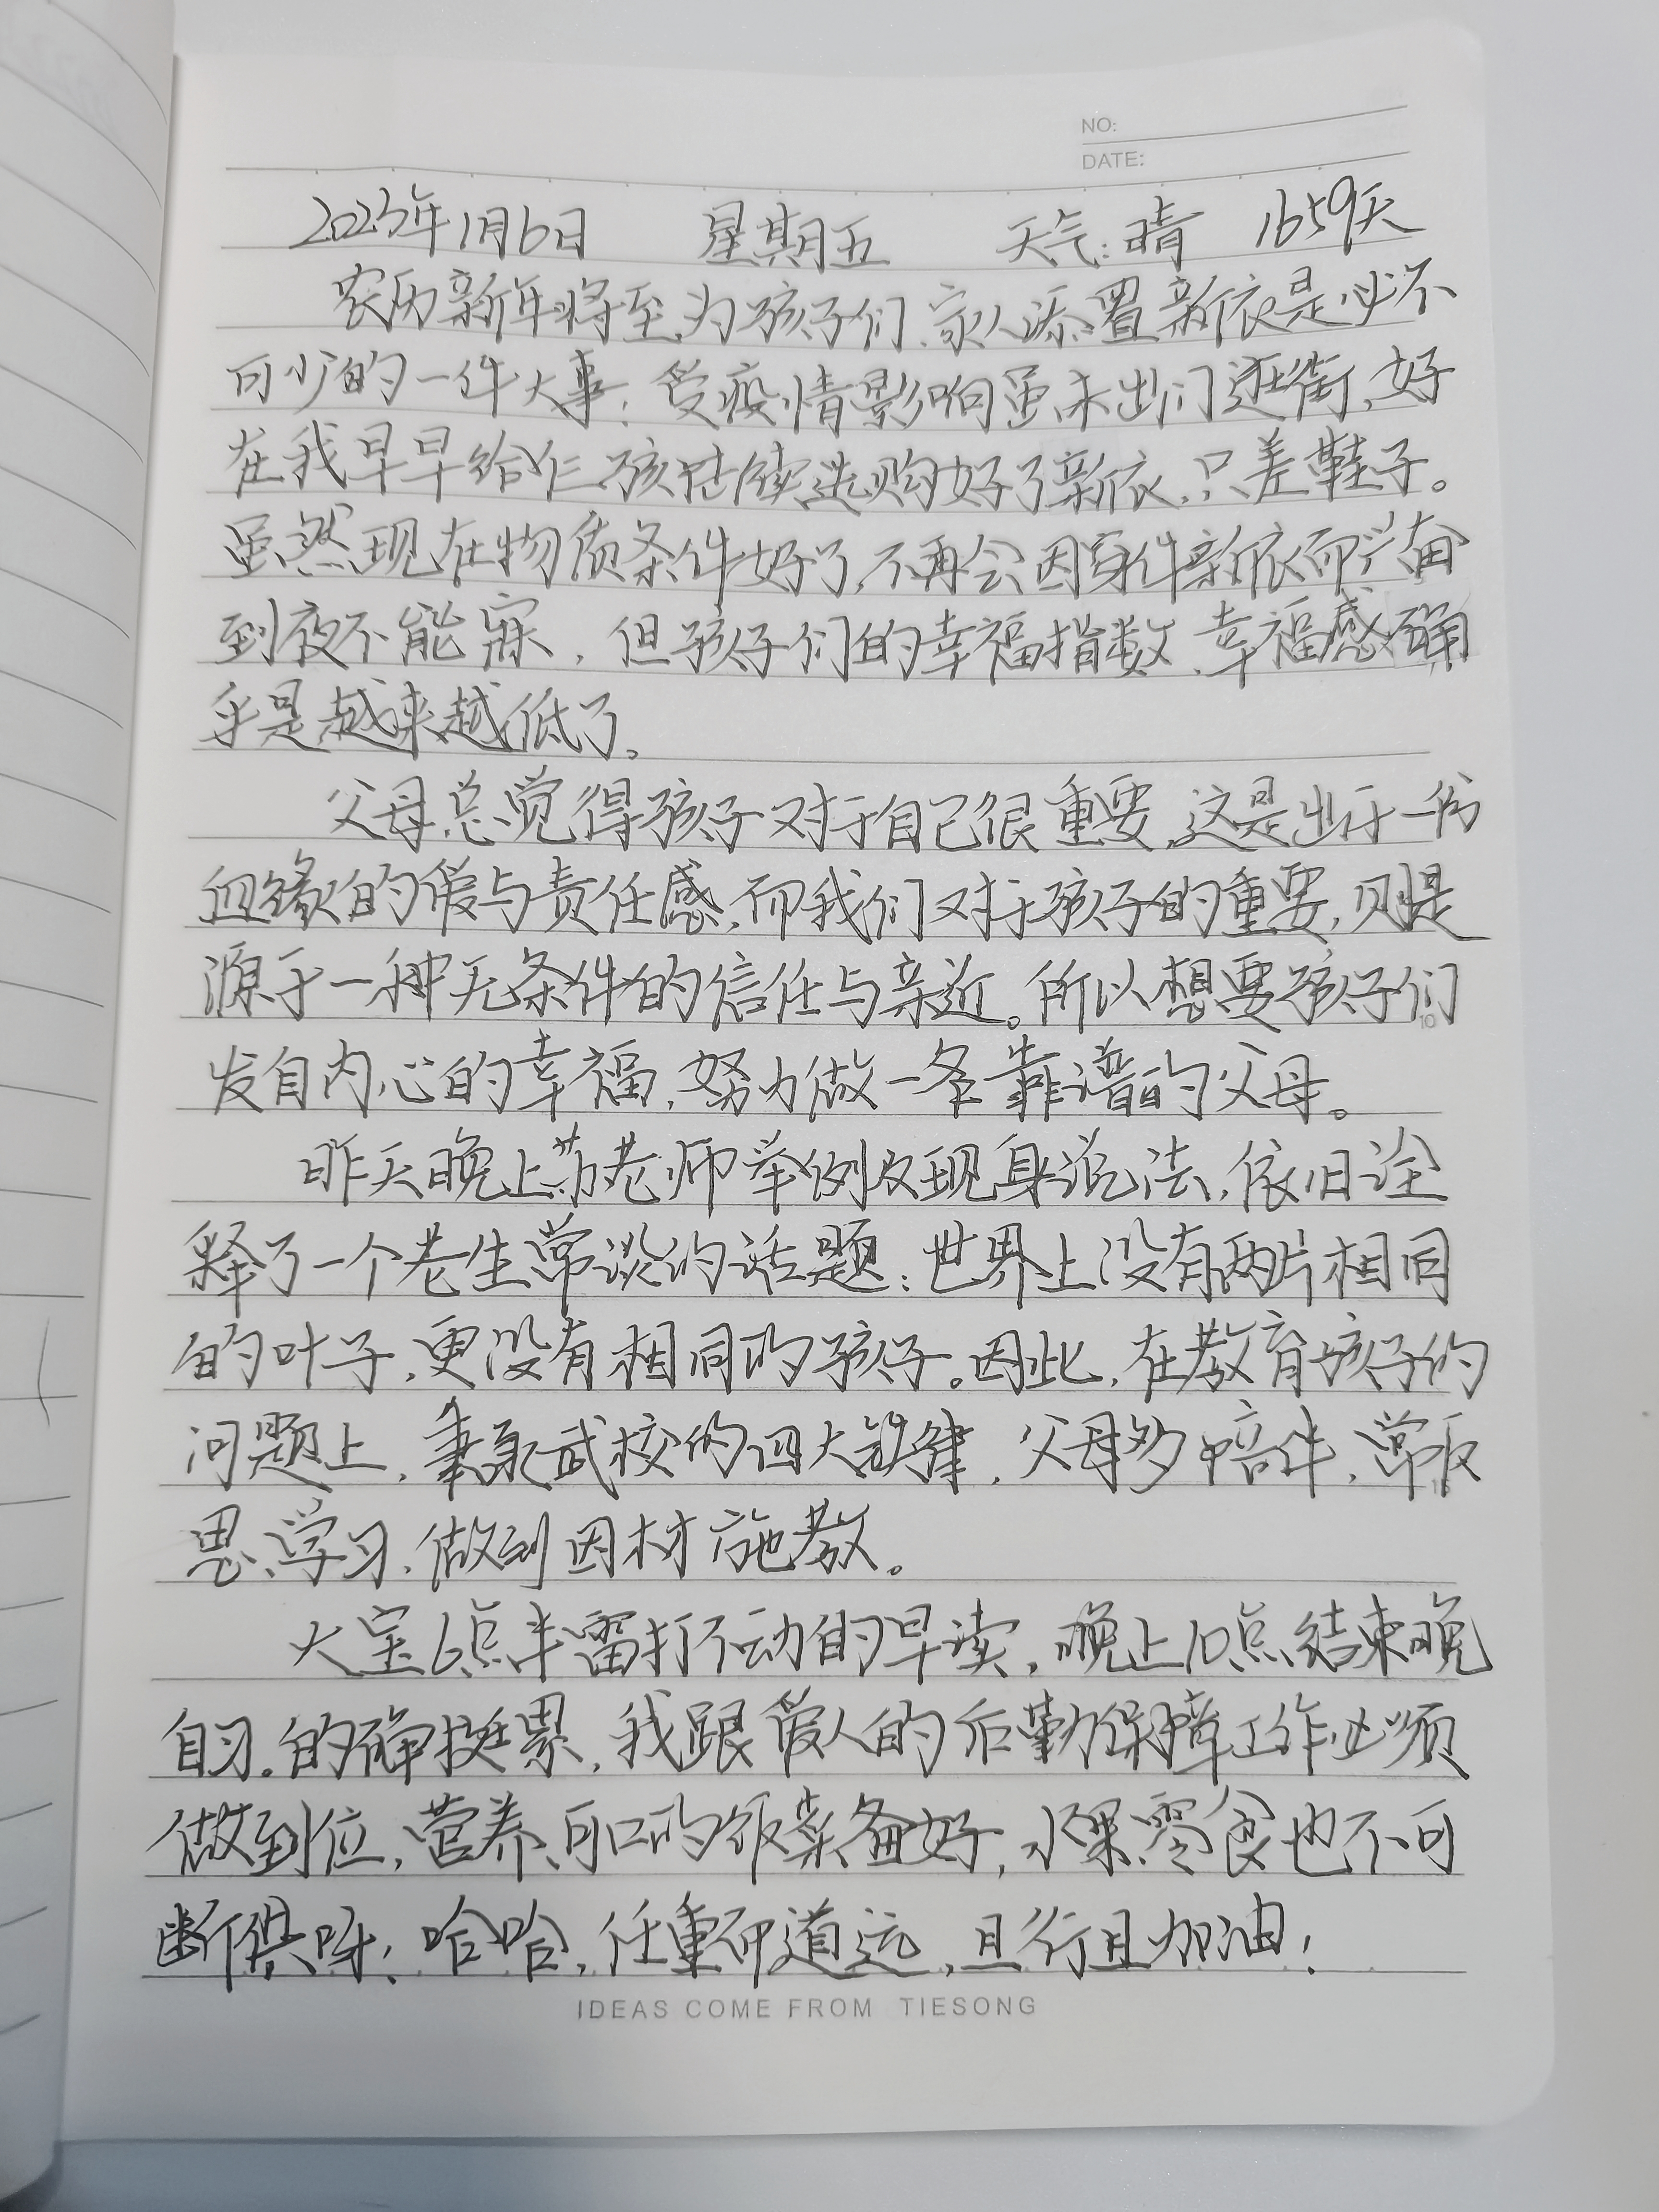 NO:
DATE:
2023年1月6日 星期五 天气:晴 1659天
农历新年将至,为孩子们、家人添置新衣是必不
可少的一件大事;受疫情影响虽未出门逛街,好
在我早早给仨孩陆续选购好了新衣,只差鞋子。
虽然现在物质条件好了,不再会因身件新衣而兴奋
到夜不能寐,但孩子们的幸福指数、幸福感确
乎是越来越低了。
父母总觉得孩子对于自己很重要,这是出于一份
血缘的爱与责任感,而我们对于孩子的重要,则是
源于一种无条件的信任与亲近。所以想要孩子们
发自内心的幸福,努力做一名靠谱的父母。
昨天晚上苏老师举例及现身说法,依旧诠
释了一个老生常谈的话题:世界上没有两片相同
的叶子,更没有相同的孩子。因此,在教育孩子的
问题上,秉承武校的四大铁律,父母多陪伴,常反
思、学习,做到因材施教。
大宝6点半雷打不动的早读,晚上10点结束晚
自习。的确挺累,我跟爱人的后勤保障工作必须
做到位,营养、可口的饭菜备好,水果、零食也不可
断供呀!哈哈,任重而道远,且行且加油!
IDEAS COME FROM TIESONG